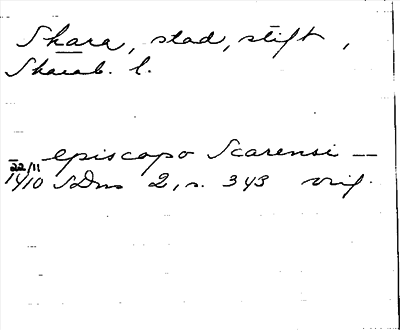 Skara, stad, stift,
Skarab. l.
episcopo Scarensi —
22/11 1410 SDns 2, s. 343 orig.